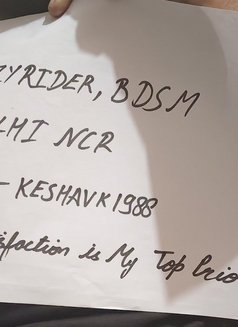 ZYRIDER, BDSM
LHI NCR
- KESHAVK1988
sfaction is My Top Prio